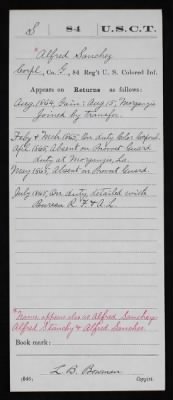 S | 84 | U.S.C.T.
*Alfred Sanchez
Corpl, Co. G, 84 Reg't U. S. Colored Inf.
Appears on Returns as follows:
Aug. 1864, Gain: Aug. 15, Morganzia
Joined by transfer.
Feby & Mch 1865, On duty Color Corporal.
Apr. 1865, Absent on Provost Guard
duty at Morganzia, La.
May 1865, Absent on Provost Guard.
July 1865, On duty, detailed with
Bureau R. F. & A. L.
*Name appears also as Alfred Sanchey
Alfred Stanchy & Alfred Sanches.
Book mark:
L. B. Bowman
(646) Copyist.